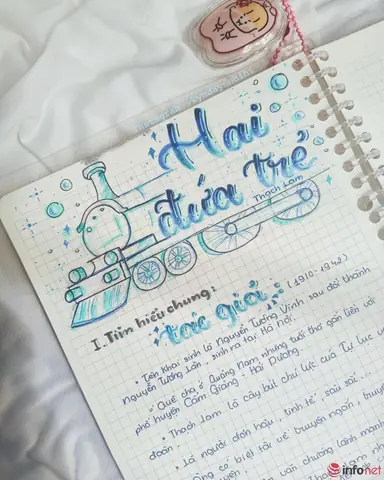 Hai
đứa trẻ
Thạch Lam
I. Tìm hiểu chung:
tác giả (1910-1942)
• Tên khai sinh là Nguyễn Tường Vinh sau đổi thành
Nguyễn Tường Lân, sinh ra tại Hà Nội.
• Quê cha ở Quảng Nam nhưng tuổi thơ gắn liền với
phố huyện Cẩm Giàng - Hải Dương.
• Thạch Lam là cây bút chủ lực của Tự lực
đoàn.
• Là người đôn hậu, tinh tế, sâu sắc...
• Ông có biệt tài về truyện ngắn, truyện
văn chương lành mạnh
infonet